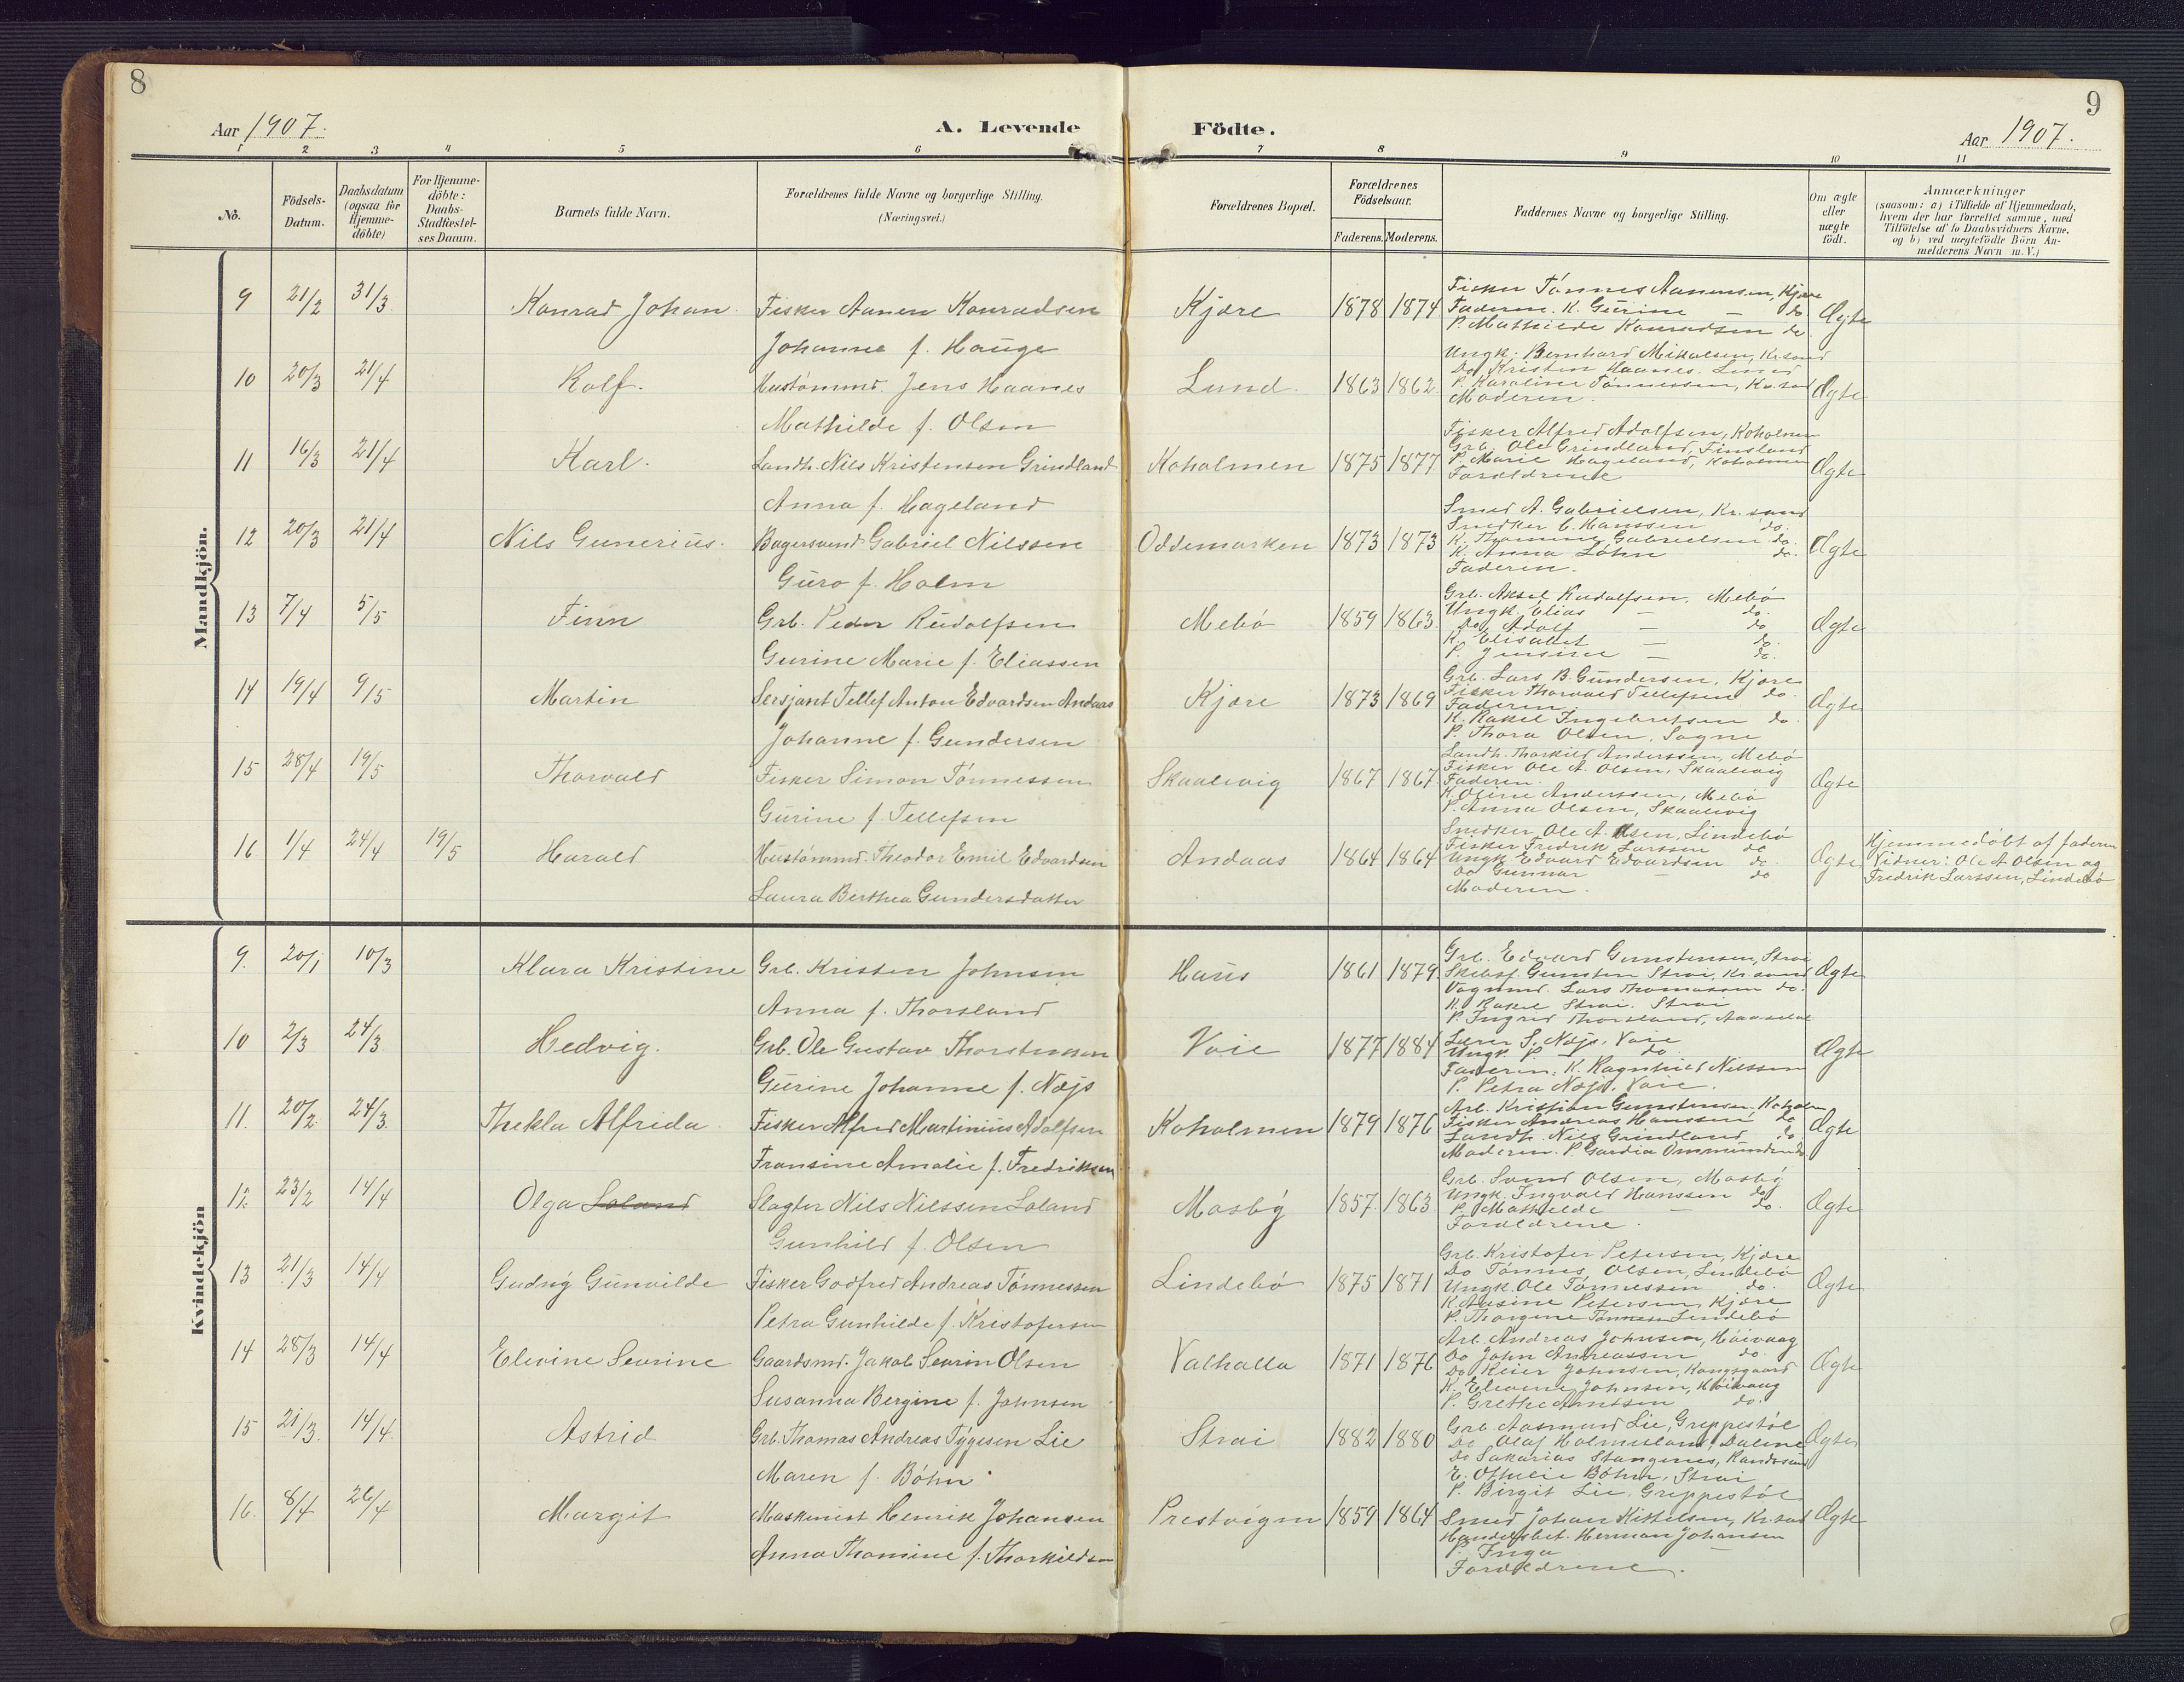 8
9
Aar 1907.
A. Levende
Födte.
Aar 1907.
1 2 3 4 5 6 7 8 9 10 11
No.
Födsels-
Datum.
Daabsdatum
(ogsaa for
Hjemme-
döbte)
For Hjemme-
döbte:
Daabs-
Stadfæstel-
ses Datum.
Barnets fulde Navn.
Forældrenes fulde Navne og borgerlige Stilling.
(Næringsvei.)
Forældrenes Bopæl.
Forældrenes
Födselsaar.
Faderens. Moderens.
Faddernes Navne og borgerlige Stilling.
Om ægte
eller
uægte
födt.
Anmærkninger
(saasom: a) i Tilfælde af Hjemmedaab,
hvem der har forrettet samme, med
Tilföielse af to Daabsvidners Navne,
og b) ved uægtefödte Börn An-
melderens Navn m.V.)
Mandkjön.
9 21/2 31/3 Konrad Johan. Fisker Aanen Konradsen
Johanne f. Hauge
Kjære 1878 1874
Fisker Tønnes Aanensen, Kjære
Faderen. K. Gurine — do
P. Mathilde Konradsen do
Ægte
10 20/3 21/4 Rolf. Hustømmd. Jens Haanes
Mathilde f. Olsen
Lund. 1863 1862.
Ungk. Bernhard Mikalsen, Kr.sand
Do Kristen Haanes. Lund
P. Karoline Tønnessen, Kr.sand
Moderen.
Ægte
11 16/3 21/4 Karl. Landh. Nils Kristensen Grindland
Anna f. Hageland
Koholmen 1875 1877
Fisker Alfred Adolfsen, Koholmen
Grb. Ole Grindland, Finsland
P. Marie Hageland, Koholmen
Forældrene
Ægte
12 20/3 21/4 Nils Gunerius. Bagersvend Gabriel Nilssen
Guro f. Holm
Oddemarken 1873 1873
Smed A. Gabrielsen, Kr.sand
Snedker C. Hanssen do.
K. Thomine Gabrielsen do.
K. Anna Løhn do.
Faderen.
Ægte
13 7/4 5/5 Finn Grb. Peder Rudolfsen
Gurine Marie f. Eliassen
Mebø 1859 1863
Grb. Aksel Rudolfsen, Mebø
Ungk. Elias — do.
Do Adolf — do
K. Elisabet do.
P. Jensine — do.
Ægte
14 19/4 9/5 Martin Sersjant Tellef Anton Edvardsen Andaas
Johanne f. Gundersen
Kjære 1873 1869
Grb. Lars B. Gundersen, Kjære
Fisker Thorvald Tellefsen do.
Faderen.
K. Rakel Ingebretsen do.
P. Thora Olsen, Søgne
Ægte
15 28/4 19/5 Thorvald Fisker Simon Tønnessen
Gurine f. Tellefsen
Skaalevig 1867 1867.
Landh. Thorkild Anderssen, Mebø
Fisker Ole A. Olsen, Skaalevig
Faderen.
K. Oline Anderssen, Mebø
P. Anna Olsen, Skaalevig
Ægte
16 1/4 24/4 19/5 Harald Hustømmd. Theodor Emil Edvardsen
Laura Berthea Gundersdatter
Andaas 1864 1864
Snedker Ole A. Olsen, Lindebø
Fisker Fredrik Larssen do
Ungk Edvard Edvardsen do.
Do Gunnar — do
Moderen.
Ægte
Hjemmedøbt af faderen
Vidner: Ole A Olsen og
Fredrik Larssen, Lindebø
Kvindekjön
9. 20/1 10/3 Klara Kristine Grb. Kristen Johnsen
Anna f. Thorsland
Haus 1861 1879.
Grb. Edvard Gunstensen, Strai
Skibsf. Gunsten Strai, Kr.sand
Vognmd. Lars Thomassen do.
K. Rakel Strai. Strai
P. Ingrid Thorsland, Aaseral
Ægte
10 2/3 24/3 Hedvig. Grb. Ole Gustav Thorstensen
Gurine Johanne f. Næjs
Voie 1877 1884
Lærer S. Næjs. Voie
Ungk. P. — do.
Faderen. K. Ragnhild Nilssen
P. Petra Næjs. Voie.
Ægte
11. 20/2 24/3. Thekla Alfrida. Fisker Alfred Martinius Adolfsen
Fransine Amalie f. Fredriksen
Koholmen 1879 1876
Arb. Kristian Gunstensen, Koholmen
Fisker Andreas Hanssen do
Landh. Nils Grindland do.
Moderen. P. Gardia Ommundsen do
Ægte
12. 23/2 14/4 Olga Loland Slagter Nils Nilssen Loland
Gunhild f. Olsen
Mosby 1857. 1863.
Grb. Svend Olsen, Mosby
Ungk. Ingvald Hanssen do
P. Mathilde — do.
Forældrene.
Ægte
13 21/3 14/4 Gudny Gunvilde Fisker Godfred Andreas Tønnessen
Petra Gunhilde f. Kristofersen
Lindebø 1875 1871
Grb. Kristofer Petersen, Kjære
Do Tønnes Olsen, Lindebø
Ungk. Ole Tønnessen do.
K. Aasine Petersen, Kjære
P. Thorgine Tønnessen Lindebø
Ægte
14 28/3 14/4 Elevine Sevrine Gaardsmd. Jakob Sevrin Olsen
Susanna Bergine f. Johnsen
Valhalla 1871 1876
Arb. Andreas Johnsen, Høivaag
Do John Andreassen do.
Do Reier Johnsen, Kongsgaard
K. Elevine Johnsen, Høivaag
P. Grethe Arntsen do.
Ægte
15 21/3. 14/4. Astrid Grb. Thomas Andreas Tygesen Lie
Maren f. Bøhn
Strai 1882 1880
Grb Aasmund Lie, Greppestøl
Do Olaf Holmesland, Dalene
Do Sakarias Stangenes, Randesund
E. Othilie Bøhn, Strai
P. Birgit Lie. Greppestøl
Ægte
16. 8/4 26/4 Margit Maskinist Henrik Johansen
Anna Thomine f. Thorkildsen
Prestvigen 1859 1864
Smed Johan Kittelsen, Kr.sand
Handelsbet. Herman Johansen
P. Inga —
Forældrene.
Ægte